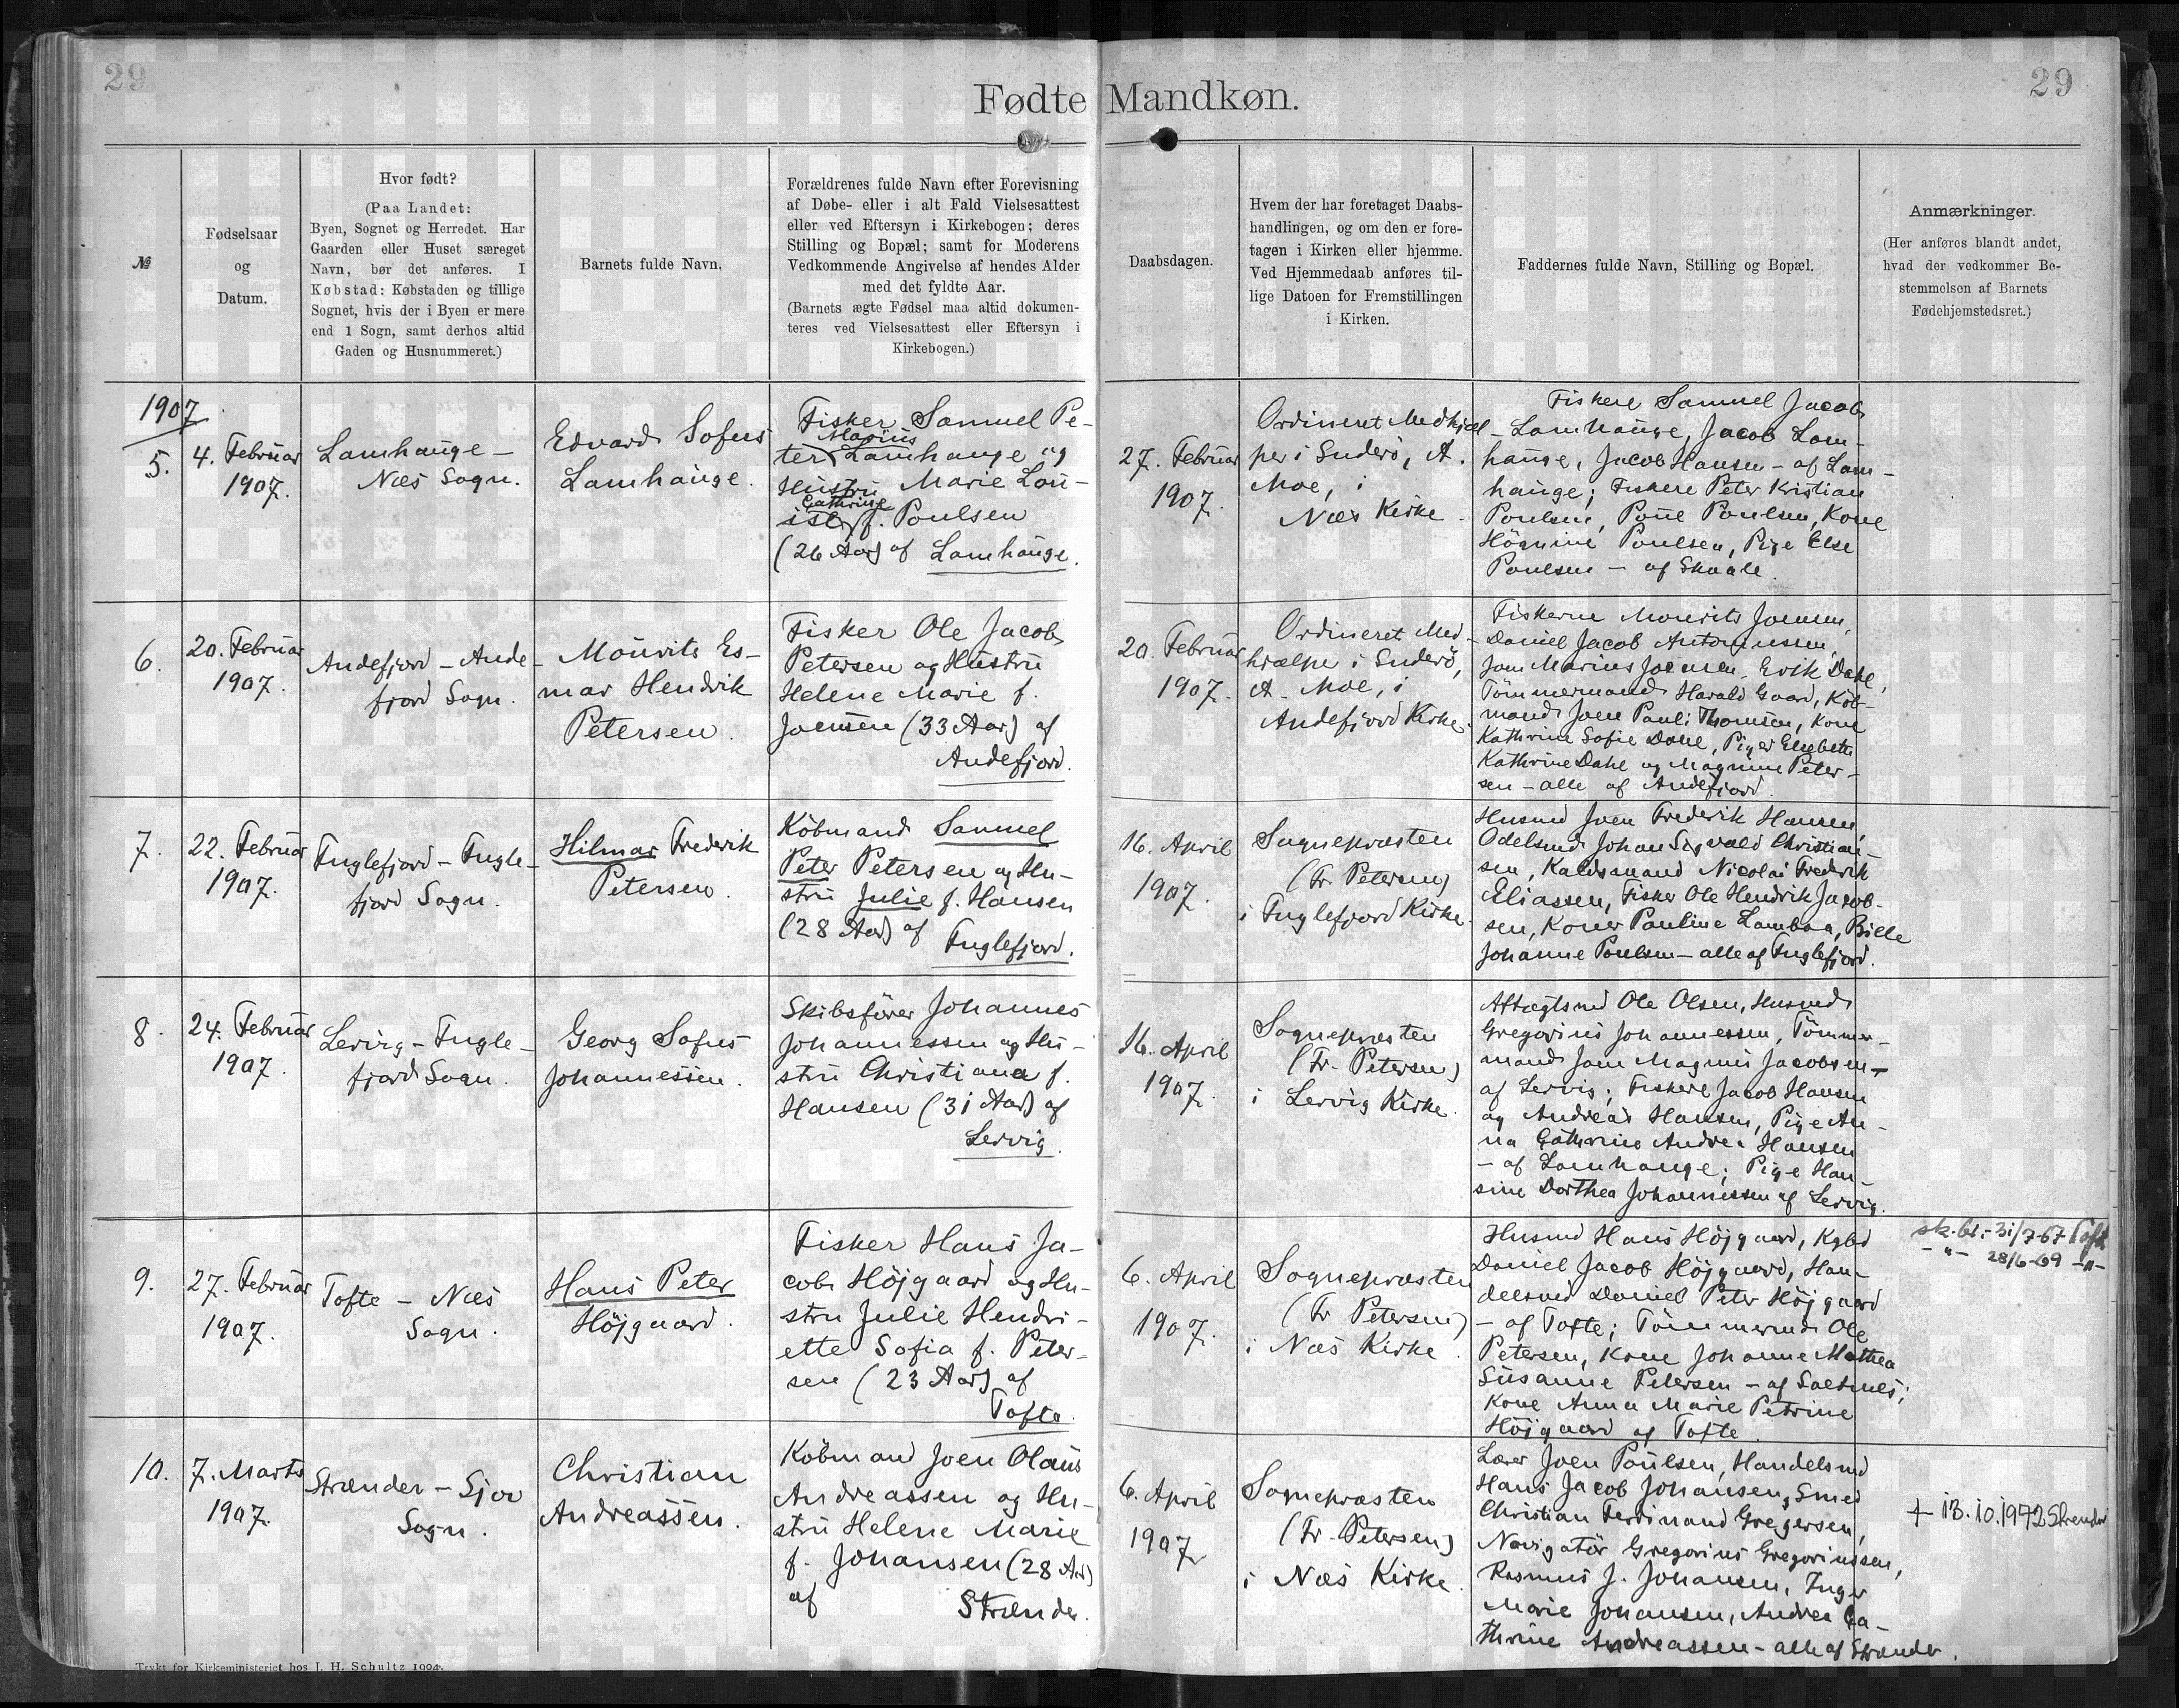 29
29
Fødte Mandkøn.
№
Fødselsaar
og
Datum.
Hvor født?
(Paa Landet:
Byen, Sognet og Herredet. Har
Gaarden eller Huset særeget
Navn, bør det anføres. I
Købstad: Købstaden og tillige
Sognet, hvis der i Byen er mere
end 1 Sogn, samt derhos altid
Gaden og Husnummeret.)
Barnets fulde Navn.
Forældrenes fulde Navn efter Forevisning
af Døbe- eller i alt Fald Vielsesattest
eller ved Eftersyn i Kirkebogen; deres
Stilling og Bopæl; samt for Moderens
Vedkommende Angivelse af hendes Alder
med det fyldte Aar.
(Barnets ægte Fødsel maa altid dokumen-
teres ved Vielsesattest eller Eftersyn i
Kirkebogen.)
Daabsdagen.
Hvem der har foretaget Daabs-
handlingen, og om den er fore-
tagen i Kirken eller hjemme.
Ved Hjemmedaab anføres til-
lige Datoen for Fremstillingen
i Kirken.
Faddernes fulde Navn, Stilling og Bopæl.
Anmærkninger.
(Her anføres blandt andet,
hvad der vedkommer Be-
stemmelsen af Barnets
Fødehjemstedsret.)
1907
5.
4. Februar
1907.
Lamhauge -
Næs Sogn.
Edvard Sofus
Lamhauge.
Fisker Samuel Pe-
Marius
ter Lamhauge og
Hustru Marie Lou-
Cathrine
ise f. Poulsen
(26 Aar) af Lamhauge.
27. Februar
1907.
Ordineret Medhjæl-
per i Suderø, A.
Moe, i
Næs Kirke.
Fiskere Samuel Jacob
Lamhauge, Jacob Lam-
hauge, Jacob Hansen - af Lam-
hauge; Fiskere Peter Kristian
Poulsen, Poul Poulsen, Kone
Høgnine Poulsen, Pige Else
Poulsen - af Skaale.
6.
20. Februar
1907.
Andefjord - Ande-
fjord Sogn.
Mourits Es-
mar Hendrik
Petersen.
Fisker Ole Jacob
Petersen og Hustru
Helene Marie f.
Joensen (33 Aar) af
Andefjord.
20. Februar
1907.
Ordineret Med-
hjælper i Suderø,
A. Moe, i
Andefjord Kirke.
Fiskerne Mourits Joensen,
Daniel Jacob Antoniussen,
Joen Marius Joensen, Erik Dahl,
Tömmermand Harald Gaard, Köb-
mand Joen Pauli Thomsen, Kone
Kathrine Sofie Dahl, Piger Elsebeth
Kathrine Dahl og Magnine Peter-
sen - alle af Andefjord.
7.
22. Februar
1907.
Fuglefjord - Fugle-
fjord Sogn.
Hilmar Frederik
Petersen.
Köbmand Samuel
Peter Petersen og Hu-
stru Julie f. Hansen
(28 Aar) af
Fuglefjord.
16. April
1907.
Sognepræsten
(Fr. Petersen)
i Fuglefjord Kirke.
Husmd Joen Frederik Hansen,
Odelsmd Johan Sigvald Christian-
sen, Kaldsmand Nicolai Frederik
Eliassen, Fisker Ole Hendrik Jacob-
sen, Koner Pauline Lambaa, Bille
Johanne Poulsen - alle af Fuglefjord.
8.
24. Februar
1907.
Lervig - Fugle-
fjord Sogn.
Georg Sofus
Johannessen.
Skibsfører Johannes
Johannessen og Hu-
stru Christiana f.
Hansen (31 Aar) af
Lervig.
16. April
1907.
Sognepræsten
(Fr. Petersen)
i Lervig Kirke.
Aftægtsmd Ole Olsen, Husmd
Gregorius Johannessen, Tömmer-
mand Joen Magnus Jacobsen -
af Lervig; Fiskere Jacob Hansen
og Andreas Hansen, Pige An-
na Cathrine Andrea Hansen
- af Lamhauge; Pige Han-
sine Dorthea Johannessen af Lervig.
9.
27. Februar
1907.
Tofte - Næs
Sogn.
Hans Peter
Højgaard.
Fisker Hans Ja-
cob Højgaard og Hu-
stru Julie Hendri-
ette Sofia f. Peter-
sen (23 Aar) af
Tofte.
6. April
1907.
Sognepræsten
(Fr Petersen)
i Næs Kirke.
Husmd Hans Højgaard, Kgbd
Daniel Jacob Højgaard, Han-
delsmd Daniel Peter Højgaard
- af Tofte; Tömmermd Ole
Petersen, Kone Johanne Mathea
Susanne Petersen - af Saltnes;
Kone Anna Marie Petrine
Højgaard af Tofte.
sk.bt.- 31/7-67 Toft
-"- 28/6-69 -"-
10.
7. Marts
1907.
Strænder - Sjov
Sogn.
Christian
Andreassen.
Köbmand Joen Olaus
Andreassen og Hu-
stru Helene Marie
f. Johansen (28 Aar)
af Strænder.
6. April
1907
Sognepræsten
(Fr. Petersen)
i Næs Kirke.
Lærer Joen Poulsen, Handelsmd
Hans Jacob Johansen, Smed
Christian Ferdinand Gregersen,
Navigatör Gregorius Gregoriussen,
Rasmus J. Johansen, Inger
Marie Johansen, Andrea Ca-
thrine Andreassen - alle af Strænder.
† 13.10.1972 Strender
Trykt for Kirkeministeriet hos I. H. Schultz 1904.